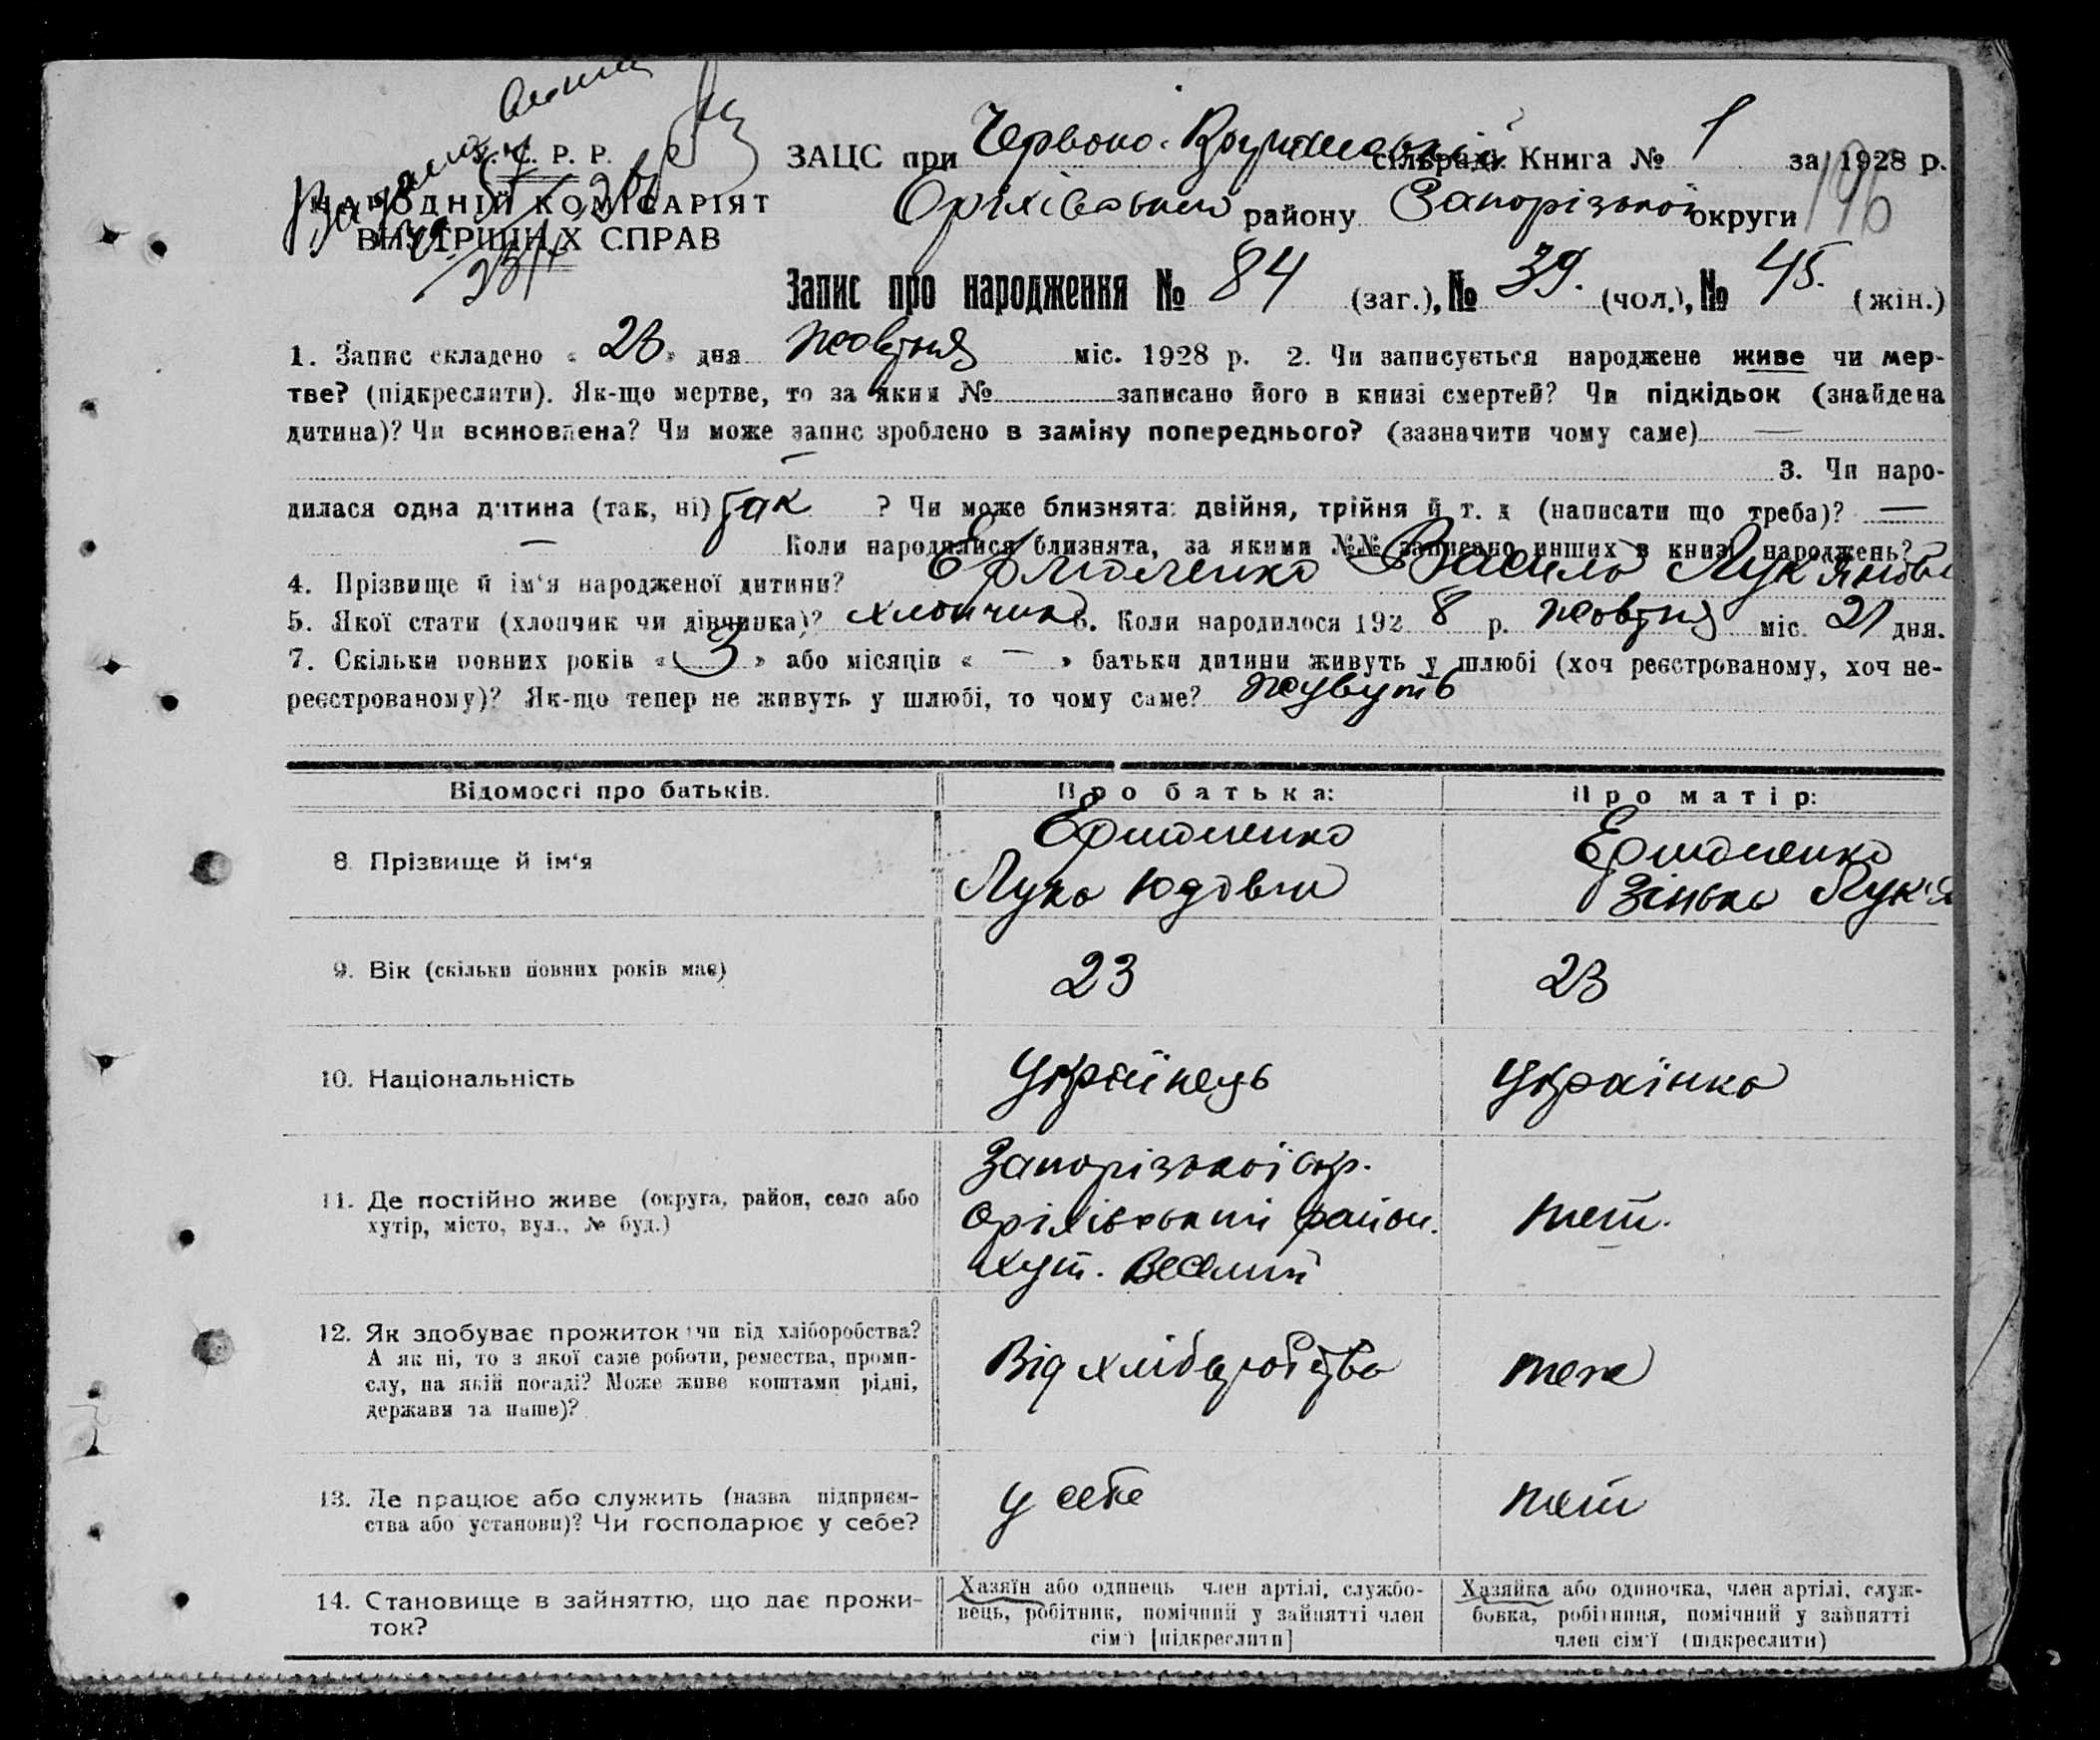 У. С. Р. Р.
НАРОДНІЙ КОМІСАРІЯТ
ВНУТРІШНІХ СПРАВ
ЗАЦС при Червоно- сільраді Книга № 1 за 1928 р.
Оріхівського району Запорізької округи 196
Запис про народження № 84 (заг.), № 39. (чол.), № 45. (жін.)
1. Запис складено « 23 » дня жовтня міс. 1928 р. 2. Чи записується народжене живе чи мер-
тве? (підкреслити). Як-що мертве, то за яким № записано його в книзі смертей? Чи підкідьок (знайдена
дитина)? Чи всиновлена? Чи може запис зроблено в заміну попереднього? (зазначити чому саме) —
— 3. Чи наро-
дилася одна дитина (так, ні) так ? Чи може близнята: двійня, трійня й т. д (написати що треба)? —
— Коли народилися близнята, за якими №№ записано инших в книзі народжень? —
4. Прізвище й ім'я народженої дитини? Єрмоленко Василь Лук'янов
5. Якої стати (хлопчик чи дівчинка)? хлопчик 6. Коли народилося 192 8 р. жовтня міс. 21 дня.
7. Скільки повних років « 3 » або місяців « — » батьки дитини живуть у шлюбі (хоч реєстрованому, хоч не-
реєстрованому)? Як-що тепер не живуть у шлюбі, то чому саме? живуть
Відомості про батьків. Про батька: Про матір:
8. Прізвище й ім'я
Єрмоленко
Лука Юдович
Єрмоленко
Зінька Лук'я
9. Вік (скільки повних років має) 23 23
10. Національність Українець Українка
11. Де постійно живе (округа, район, село або
хутір, місто, вул., № буд.)
Запорізької окр.
Оріхівський район.
хут. Веселий
теш.
12. Як здобуває прожиток: чи від хліборобства?
А як ні, то з якої саме роботи, ремества, проми-
слу, на якій посаді? Може живе коштами рідні,
держави та инше)?
Від хліборобства
теж
13. Де працює або служить (назва підприєм-
ства або установи)? Чи господарює у себе?
у себе
теш
14. Становище в зайняттю, що дає прожи-
ток?
Хазяїн або одинець член артілі, службо-
вець, робітник, помічний у зайнятті член
сім'ї [підкреслити]
Хазяйка або одиночка, член артілі, служ-
бовка, робітниця, помічний у зайнятті
член сім'ї (підкреслити)